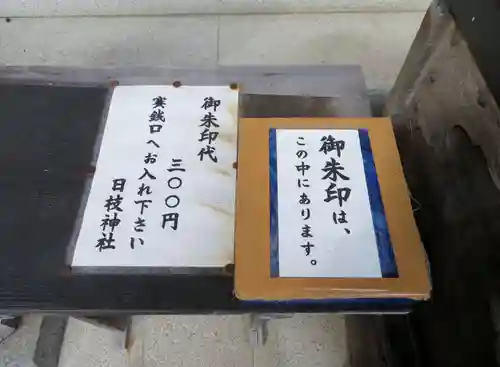 御朱印は、
この中にあります。
御朱印代
三〇〇円
賽銭口へお入れ下さい
日枝神社